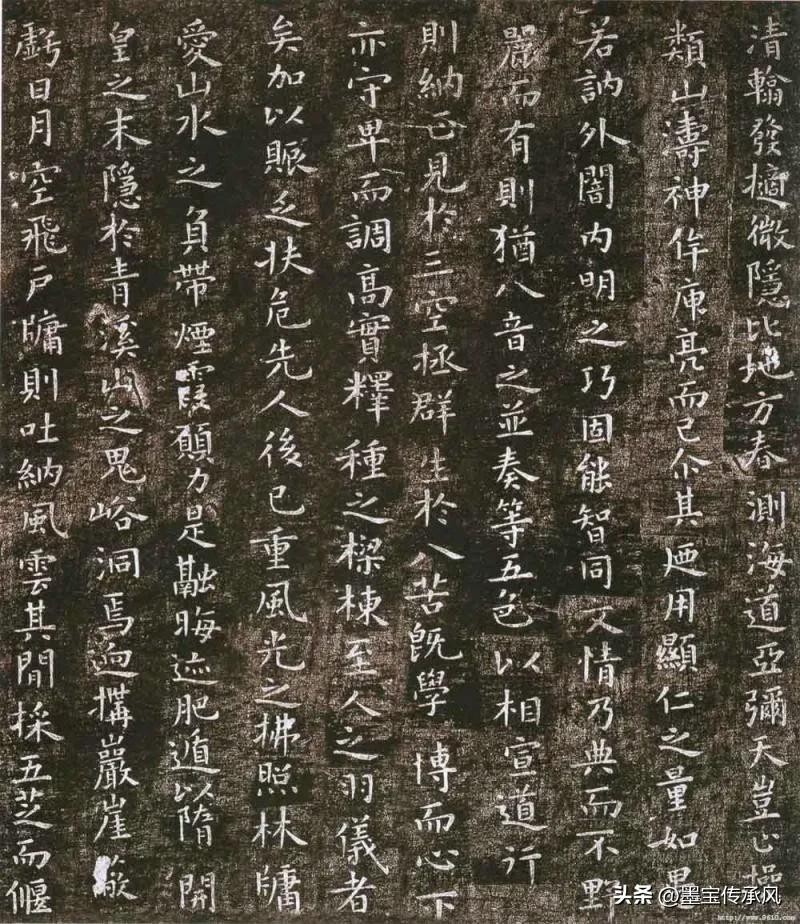 清翰發擿微隱比地方春測海道亞彌天豈止操
類山濤神侔庾亮而已尒其迺用顯仁之量如愚
若訥外闇内明之巧固能智同文情乃典而不野
麗而有則猶八音之並奏等五色以相宣道行
則納正見於三空拯群生於八苦既學博而心下
亦守卑而調高實釋種之樑棟至人之羽儀者
矣加以賑乏扶危先人後己重風光之拂照林牖
愛山水之負帶煙霞願力是融晦迹肥遁以隋開
皇之末隱於青溪山之鬼峪洞焉迥搆巖崖蔽
虧日月空飛戶牖則吐納風雲其間採五芝而偃
头条 @墨宝传承风
http://www.9610.com